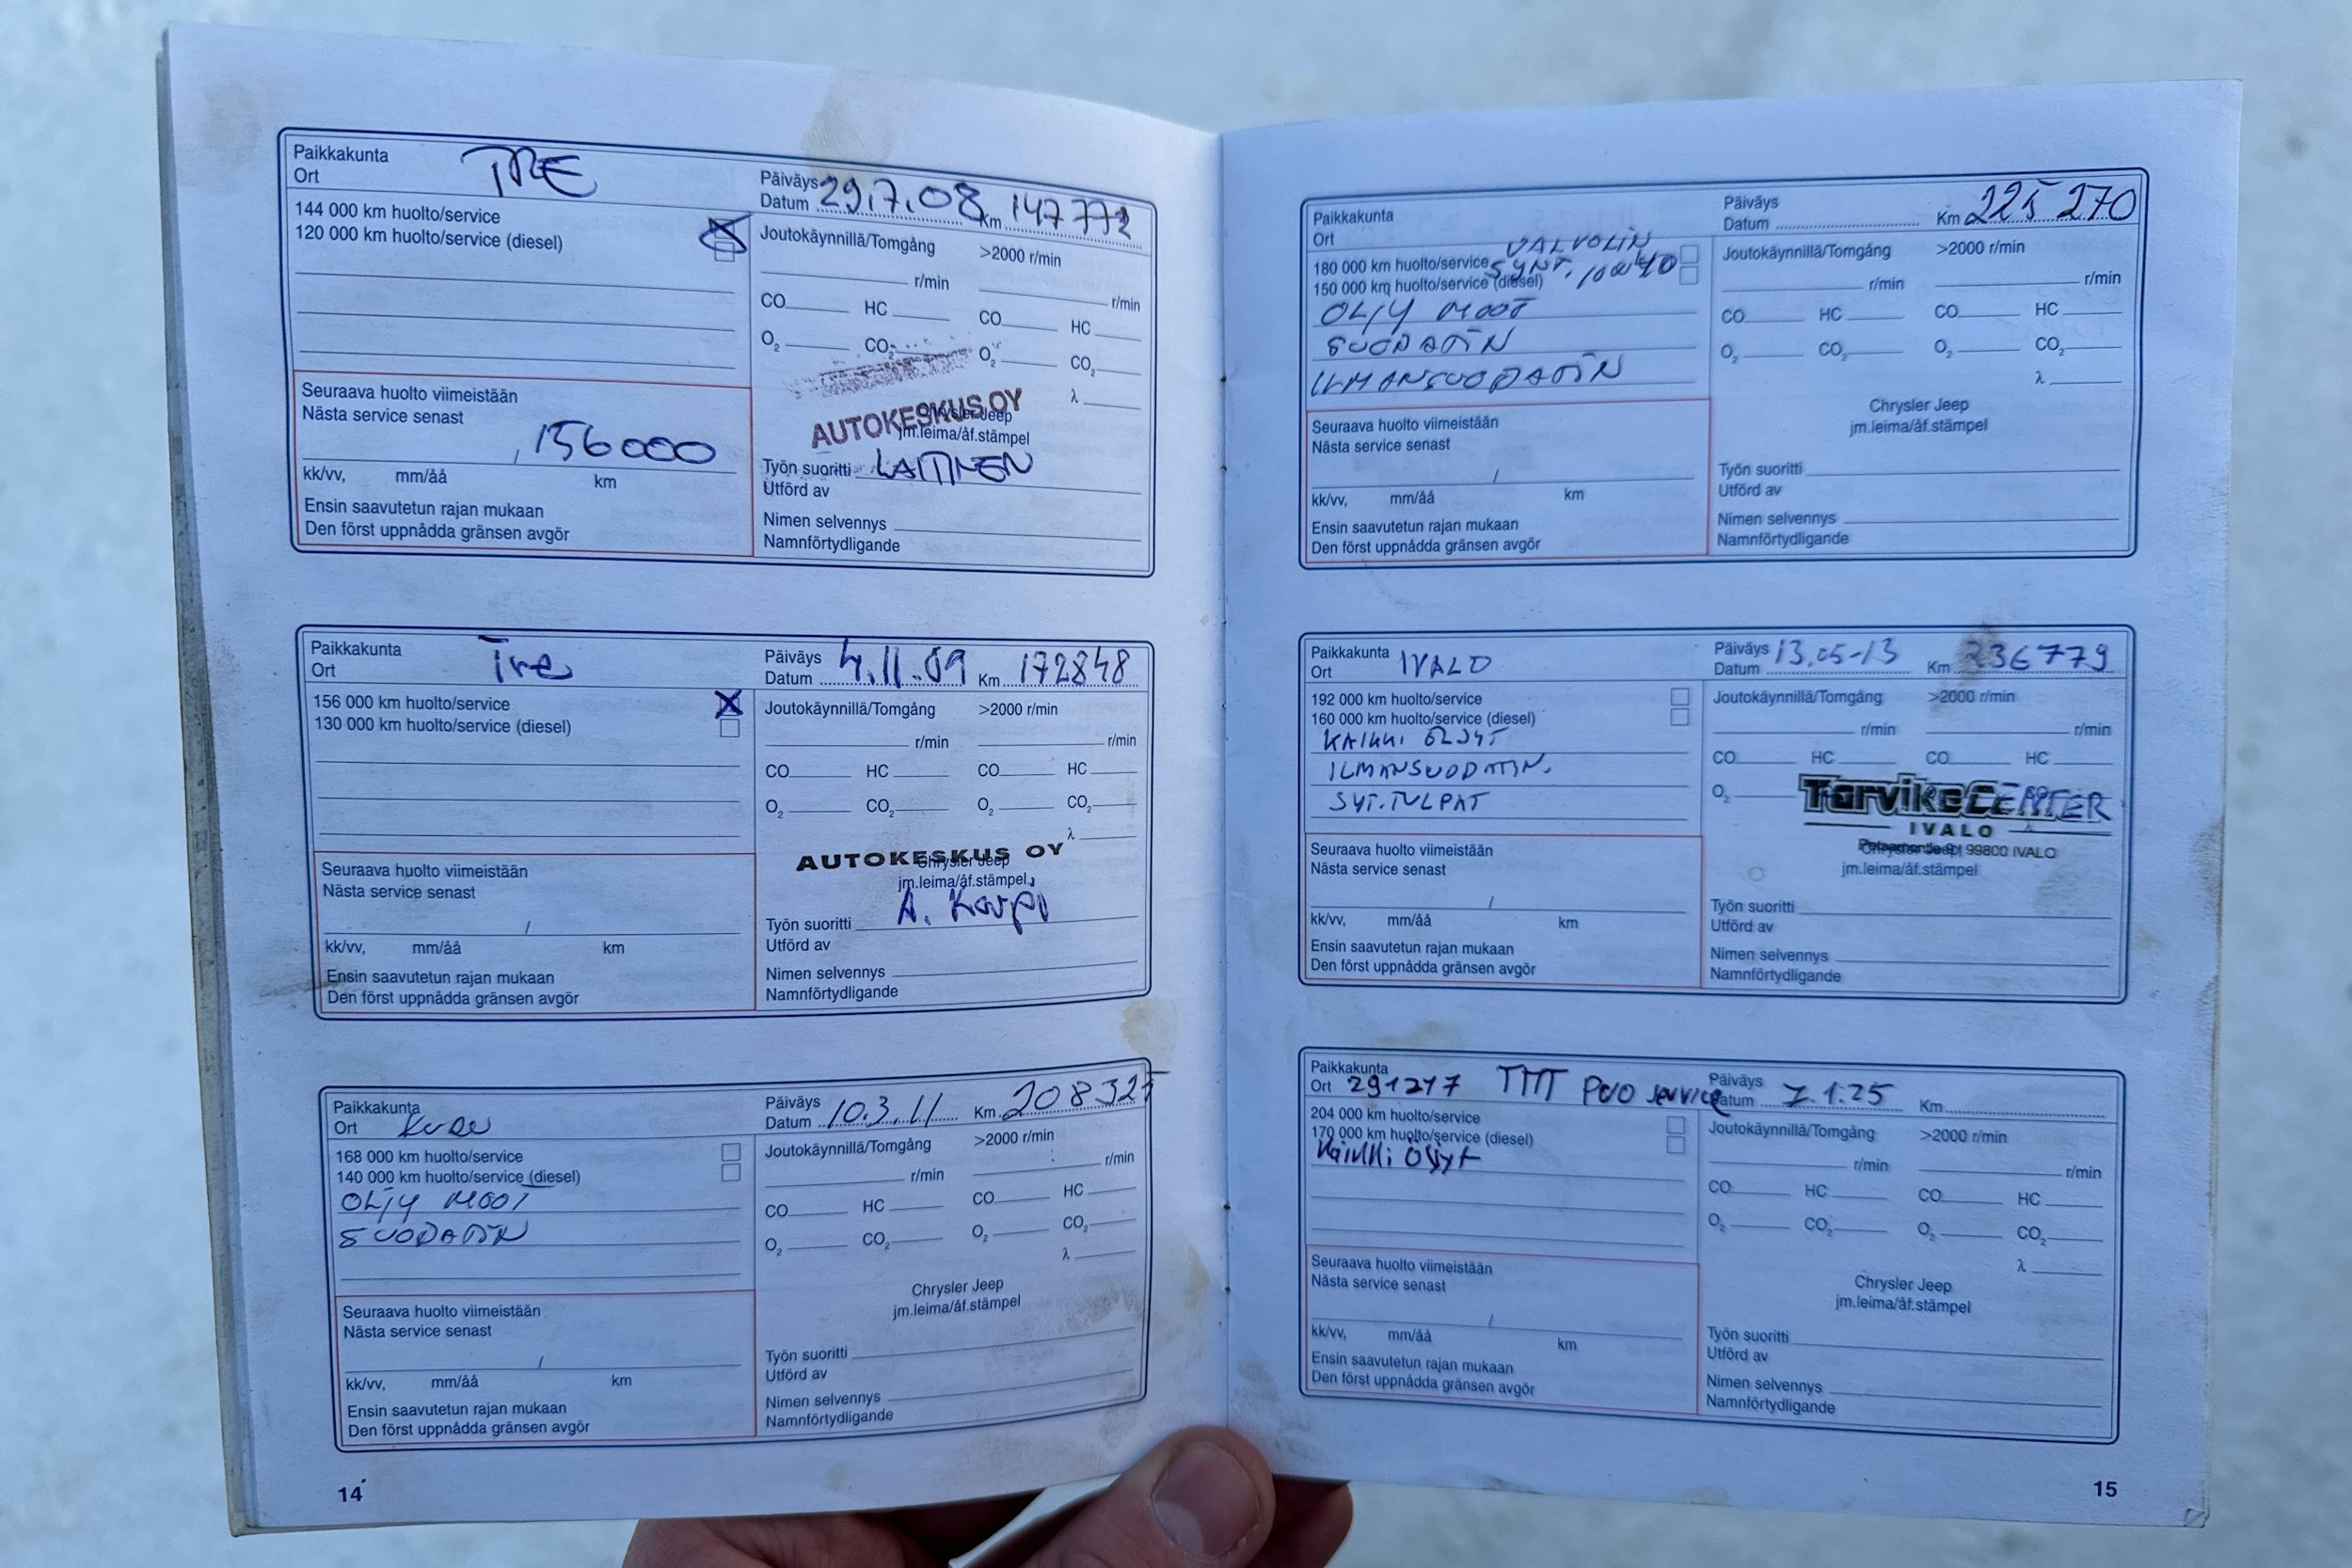 Paikkakunta
Ort
TRE
Päiväys
Datum 29.7.08 Km 147772
144 000 km huolto/service
120 000 km huolto/service (diesel)
Joutokäynnillä/Tomgång >2000 r/min
r/min r/min
CO HC CO HC
O₂ CO₂ O₂ CO₂
λ
AUTOKESKUS OY
Chrysler Jeep
jm.leima/åf.stämpel
Seuraava huolto viimeistään
Nästa service senast
/ 156000
kk/vv, mm/åå km
Ensin saavutetun rajan mukaan
Den först uppnådda gränsen avgör
Työn suoritti LAITINEN
Utförd av
Nimen selvennys
Namnförtydligande
Paikkakunta
Ort
Tre
Päiväys
Datum 4.11.09 Km 172848
156 000 km huolto/service X
130 000 km huolto/service (diesel)
Joutokäynnillä/Tomgång >2000 r/min
r/min r/min
CO HC CO HC
O₂ CO₂ O₂ CO₂
λ
AUTOKESKUS OY
Chrysler Jeep
jm.leima/åf.stämpel
Seuraava huolto viimeistään
Nästa service senast
/
kk/vv, mm/åå km
Ensin saavutetun rajan mukaan
Den först uppnådda gränsen avgör
Työn suoritti A.
Utförd av
Nimen selvennys
Namnförtydligande
Paikkakunta
Ort
Päiväys
Datum 10.3.11 Km 208325
168 000 km huolto/service
140 000 km huolto/service (diesel)
ÖLJY MOOT
SUODATIN
Joutokäynnillä/Tomgång >2000 r/min
r/min r/min
CO HC CO HC
O₂ CO₂ O₂ CO₂
λ
Chrysler Jeep
jm.leima/åf.stämpel
Seuraava huolto viimeistään
Nästa service senast
/
kk/vv, mm/åå km
Ensin saavutetun rajan mukaan
Den först uppnådda gränsen avgör
Työn suoritti
Utförd av
Nimen selvennys
Namnförtydligande
14
Paikkakunta
Ort
Päiväys
Datum Km 225 270
180 000 km huolto/service VALVOLIN
150 000 km huolto/service (diesel) SYNT. 10W40
ÖLJY MOOT
SUODATIN
ILMANSUODATIN
Joutokäynnillä/Tomgång >2000 r/min
r/min r/min
CO HC CO HC
O₂ CO₂ O₂ CO₂
λ
Chrysler Jeep
jm.leima/åf.stämpel
Seuraava huolto viimeistään
Nästa service senast
/
kk/vv, mm/åå km
Ensin saavutetun rajan mukaan
Den först uppnådda gränsen avgör
Työn suoritti
Utförd av
Nimen selvennys
Namnförtydligande
Paikkakunta
Ort
IVALO
Päiväys
Datum 13.05-13 Km 236779
192 000 km huolto/service
160 000 km huolto/service (diesel)
KAIKKI ÖLJYT
ILMANSUODATIN.
SYT.TULPAT
Joutokäynnillä/Tomgång >2000 r/min
r/min r/min
CO HC CO HC
O₂
TarvikeCENTER
IVALO
99800 IVALO
jm.leima/åf.stämpel
Seuraava huolto viimeistään
Nästa service senast
/
kk/vv, mm/åå km
Ensin saavutetun rajan mukaan
Den först uppnådda gränsen avgör
Työn suoritti
Utförd av
Nimen selvennys
Namnförtydligande
Paikkakunta
Ort 291217 TMT service
Päiväys
Datum 7.1.25 Km
204 000 km huolto/service
170 000 km huolto/service (diesel)
Kaikki öljyt
Joutokäynnillä/Tomgång >2000 r/min
r/min r/min
CO HC CO HC
O₂ CO₂ O₂ CO₂
λ
Chrysler Jeep
jm.leima/åf.stämpel
Seuraava huolto viimeistään
Nästa service senast
/
kk/vv, mm/åå km
Ensin saavutetun rajan mukaan
Den först uppnådda gränsen avgör
Työn suoritti
Utförd av
Nimen selvennys
Namnförtydligande
15